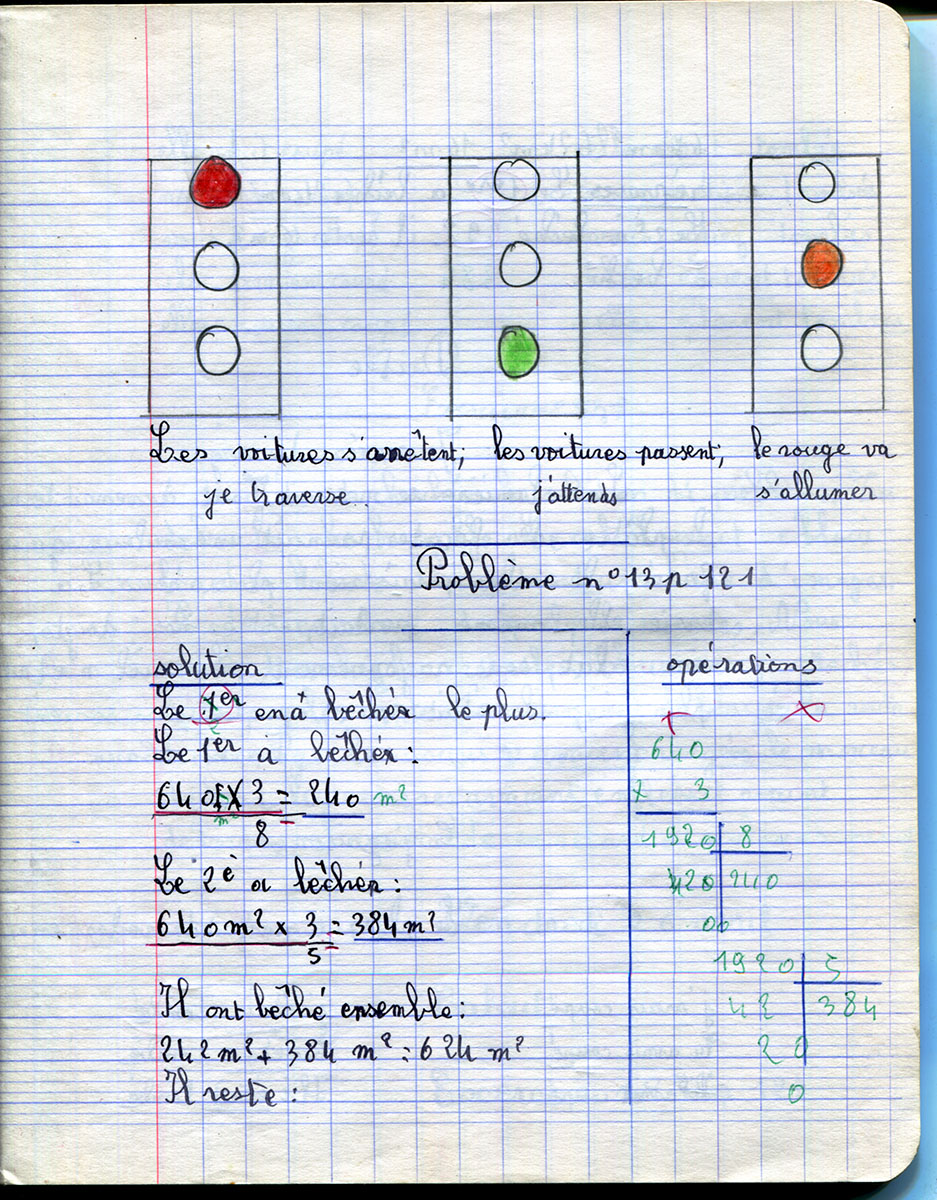 Les voitures s'arrêtent; les voitures passent; le rouge va
je traverse.. j'attends s'allumer
Problème n° 13 p 121
solution opérations
Le 1er en a bêcher le plus.
Le 1er à bêcher:
640 x 3 = 240 m²
m²
8
Le 2è a bêcher:
640 m² x 3 = 384 m²
5
Il ont bêché ensemble:
242 m² + 384 m² = 624 m²
Il reste:
640
x 3
1920 8
420 240
00
1920 5
42 384
20
0